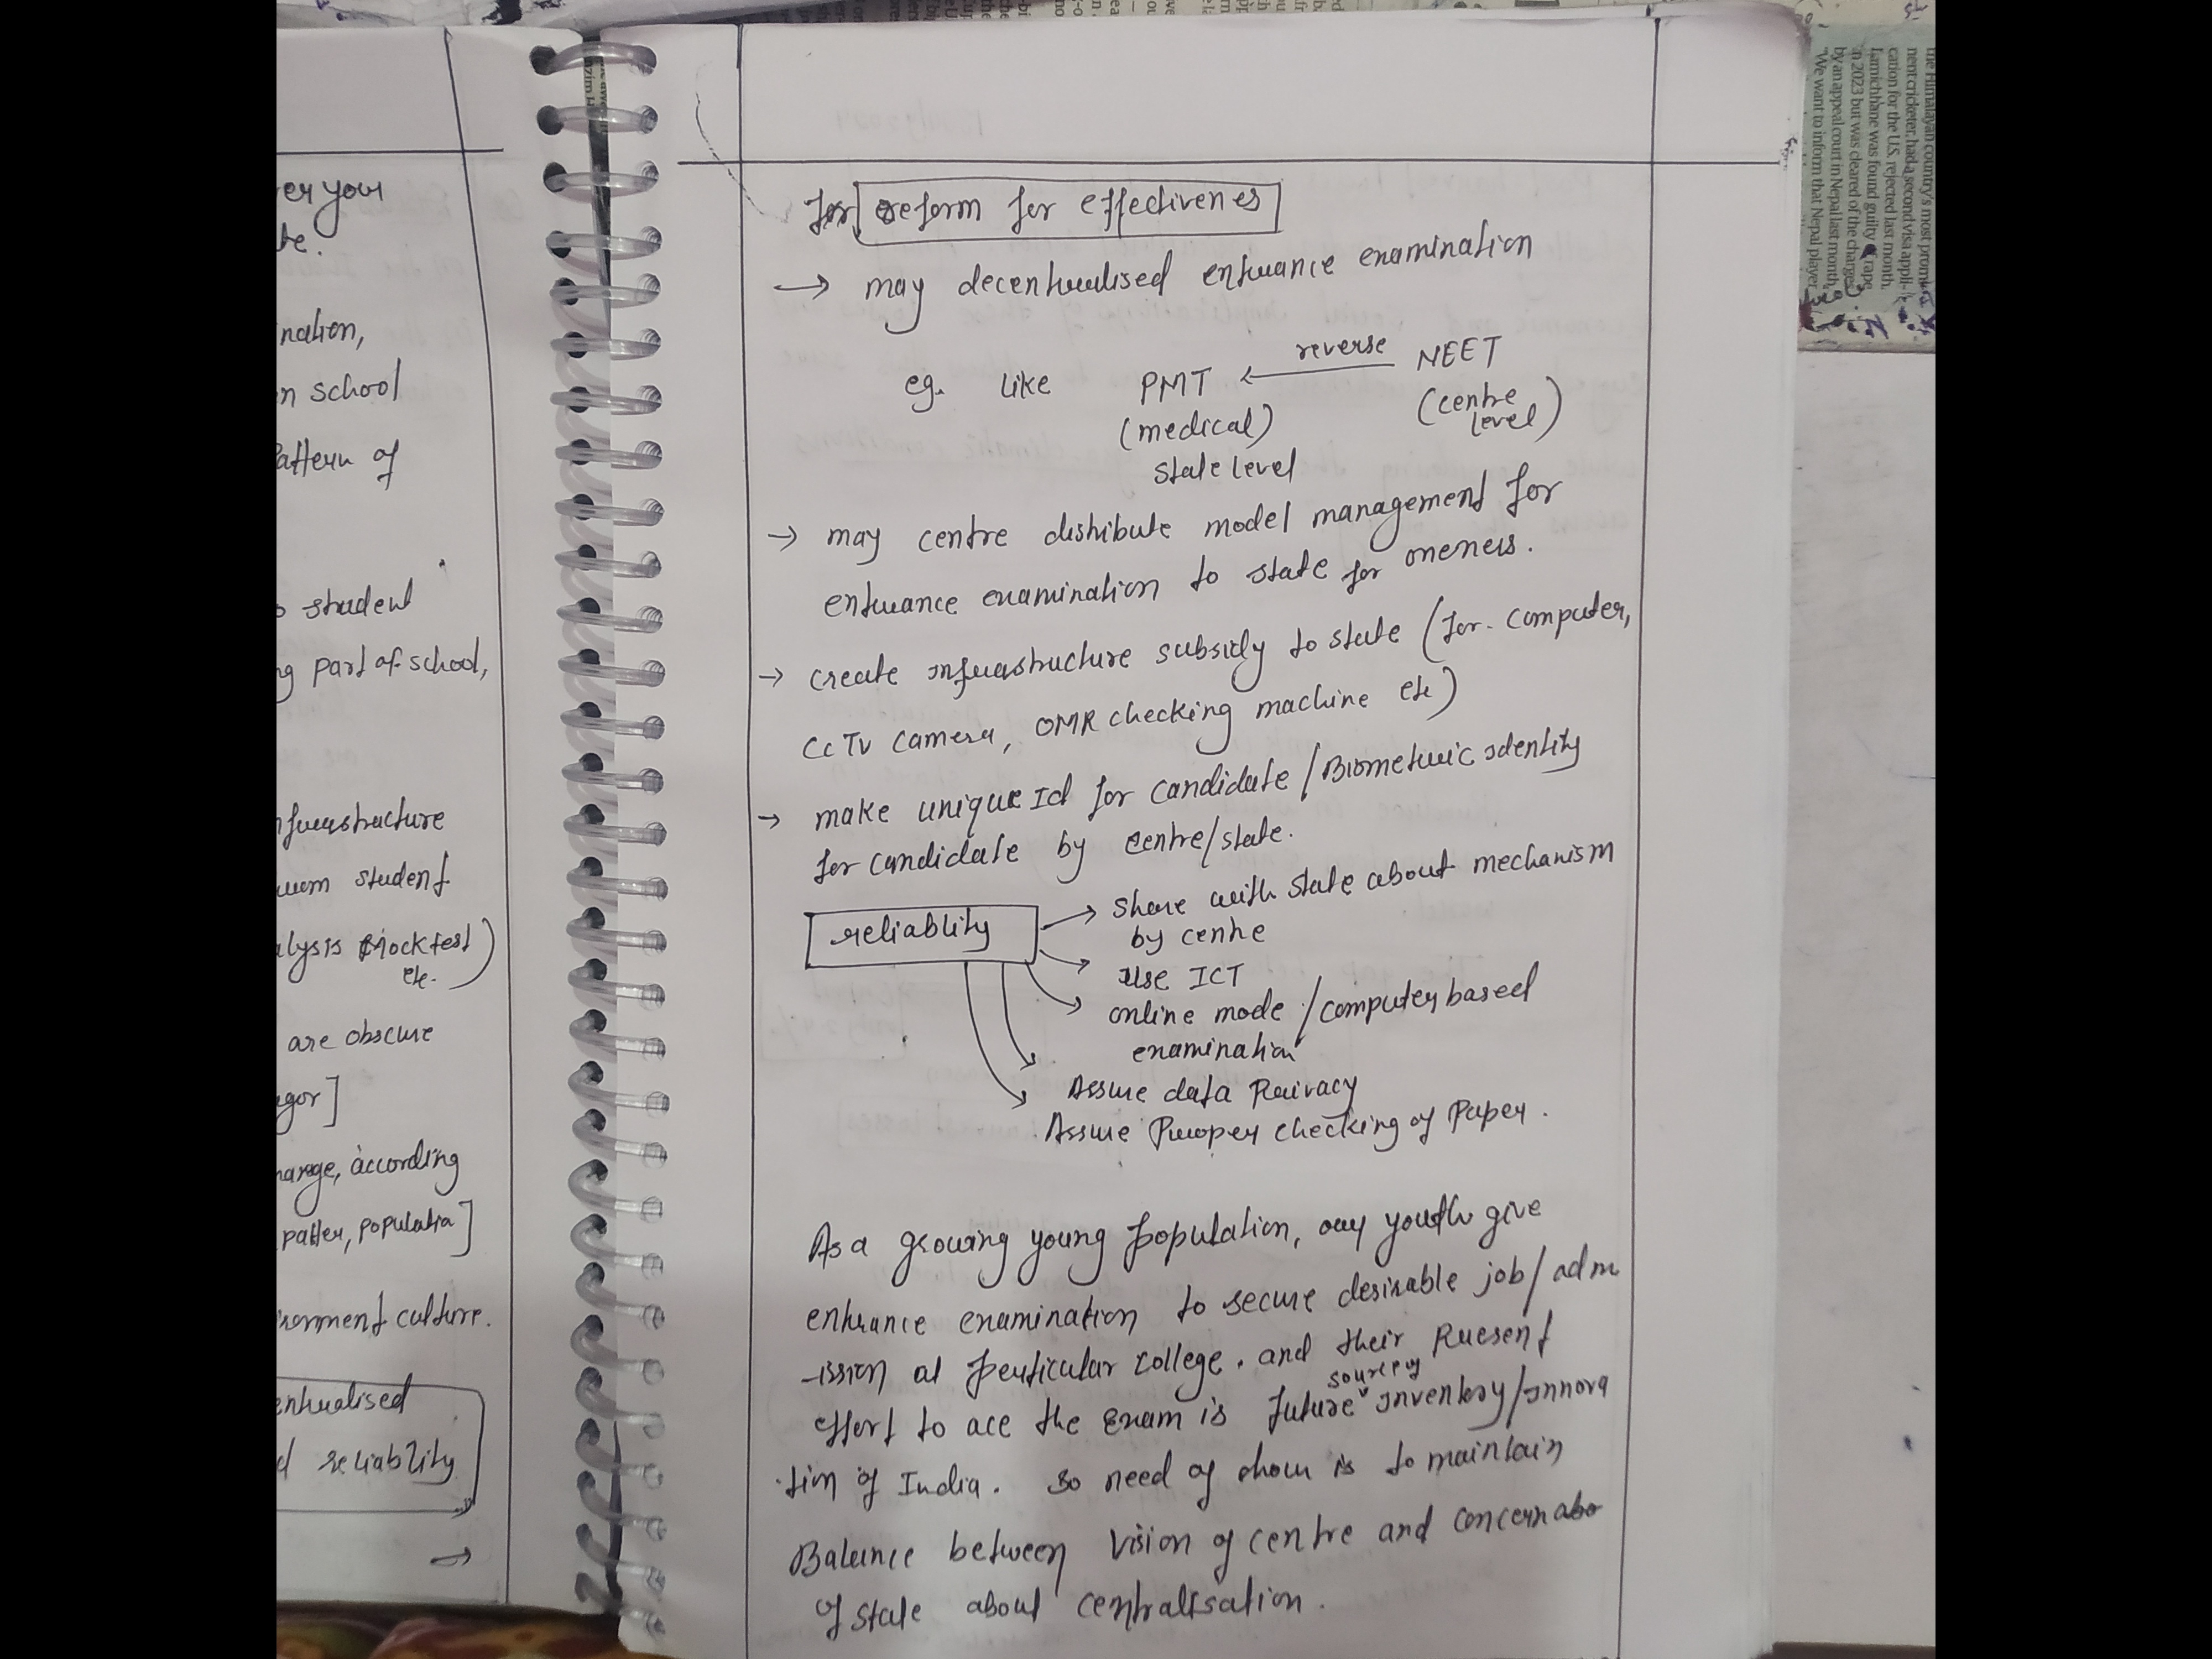 er your
te.
ination,
n school
attern of
student
ng part of school,
nfrastructure
student
alysis mock test)
etc.
are obscure
agor]
hange, according
patter, populatia]
ironment culture.
entralised
d reliablity
→
for reform for effectivenes
→ may decentralised entrance examination
eg. like PMT ← reverse NEET
(medical) (centre level)
state level
→ may centre distribute model management for
entrance examination to state for oneness.
→ create infrastructure subsidy to state (for. computer,
CCTV camera, OMR checking machine etc)
→ make unique Id for candidate / Biometric identity
for candidate by centre/state.
reliablity → share with state about mechanism
by centre
use ICT
online mode / computer based
examination
Assure data Privacy
Assure Proper checking of Paper.
As a growing young population, our youth give
entrance examination to secure desirable job/adm
-ission at perticular college. and their Present
effort to ace the exam is future source of inventory/innova
-tion of India. so need of hour is to maintain
Balance between vision of centre and concern abo
of state about centralisation.
the Himalayan country's most promi-
nent cricketer, had a second visa appli-
cation for the U.S. rejected last month.
Lamichhane was found guilty of rape
in 2023 but was cleared of the charges
by an appeal court in Nepal last month.
"We want to inform that Nepal player